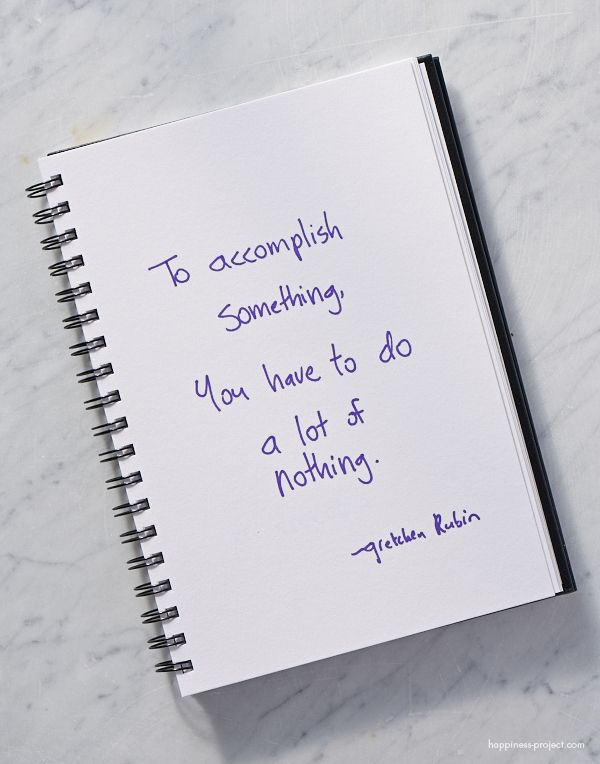 To accomplish
something,
You have to do
a lot of
nothing.
~gretchen Rubin
happiness-project.com